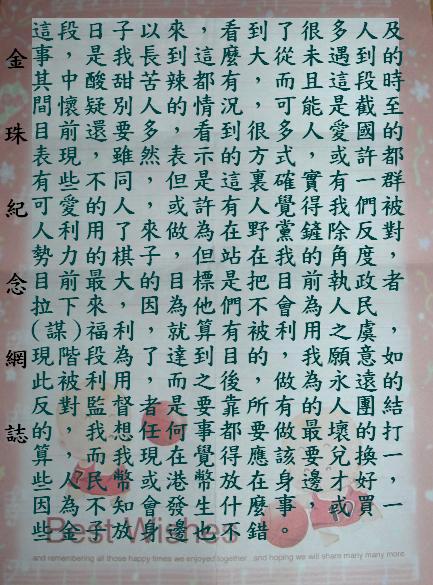 金珠紀念網誌
這段日子以來，看到了很多人及
事，是我長到這麼大從未遇到的
其中酸甜苦辣都有，而且這段時
間懷疑別人的情況，可能是截至
目前還要多，看到很多人愛國的
表現，雖然，表示的方式或許都
有些不同，但是這裏確實有一群
可愛的人，或許有覺得我們被
人利用了來做為在野黨鏟除反對
勢力的棋子，但站在我角度，
目前最大的目標是把目前執政者
拉下來，因為他們不會為人民
(謀)福利就算有被利用之虞，
現階段為了達到目的，我願意如
此被利用，而之後，做為永遠的
反對監督者是要靠所有的人團結
的，我想任何事都要做最壞的打
算，而我現在覺得應該要兌換一
些人民幣或港幣放在身邊才好，
因為不知會發生什麼事。或買一
些金子放身邊也不錯。
Best Wishes
and remembering all those happy times we enjoyed together and hoping we will share many many more